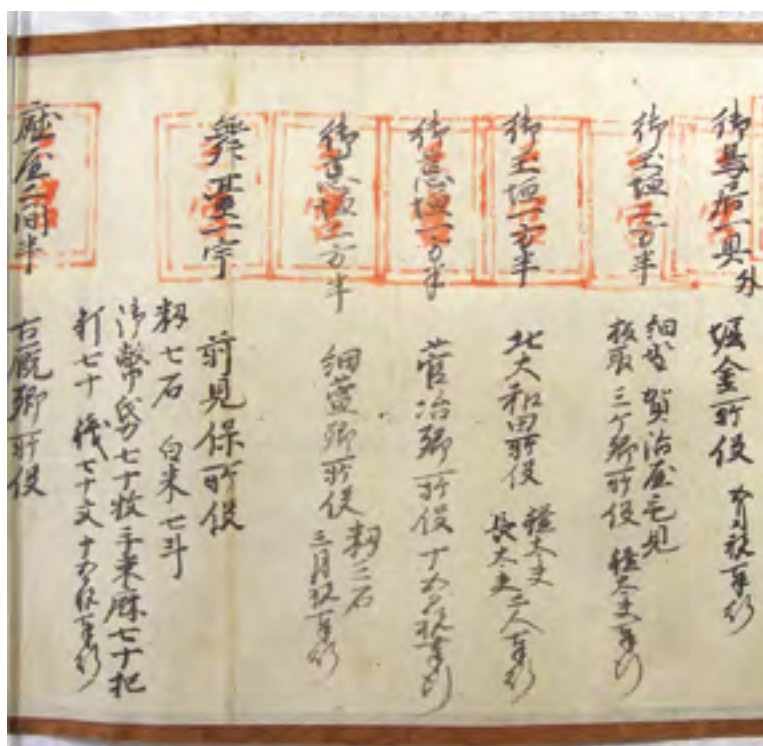 御鳥居一具外 堀金所役
御玉垣一方半 細萱 賀治屋毛見
板取 三ケ郷所役
御玉垣一方半 北大和田所役 権太夫
長太夫二人
御忌垣一方半 菅冶郷所役
御忌垣一方半 細萱郷所役 籾三石
三月
舞臺一宇 前見保所役
籾七石 白米七斗
御幣帋七十枚 手米麻七十把
釘七十 銭七十文
廰屋二間半 古厩郷所役